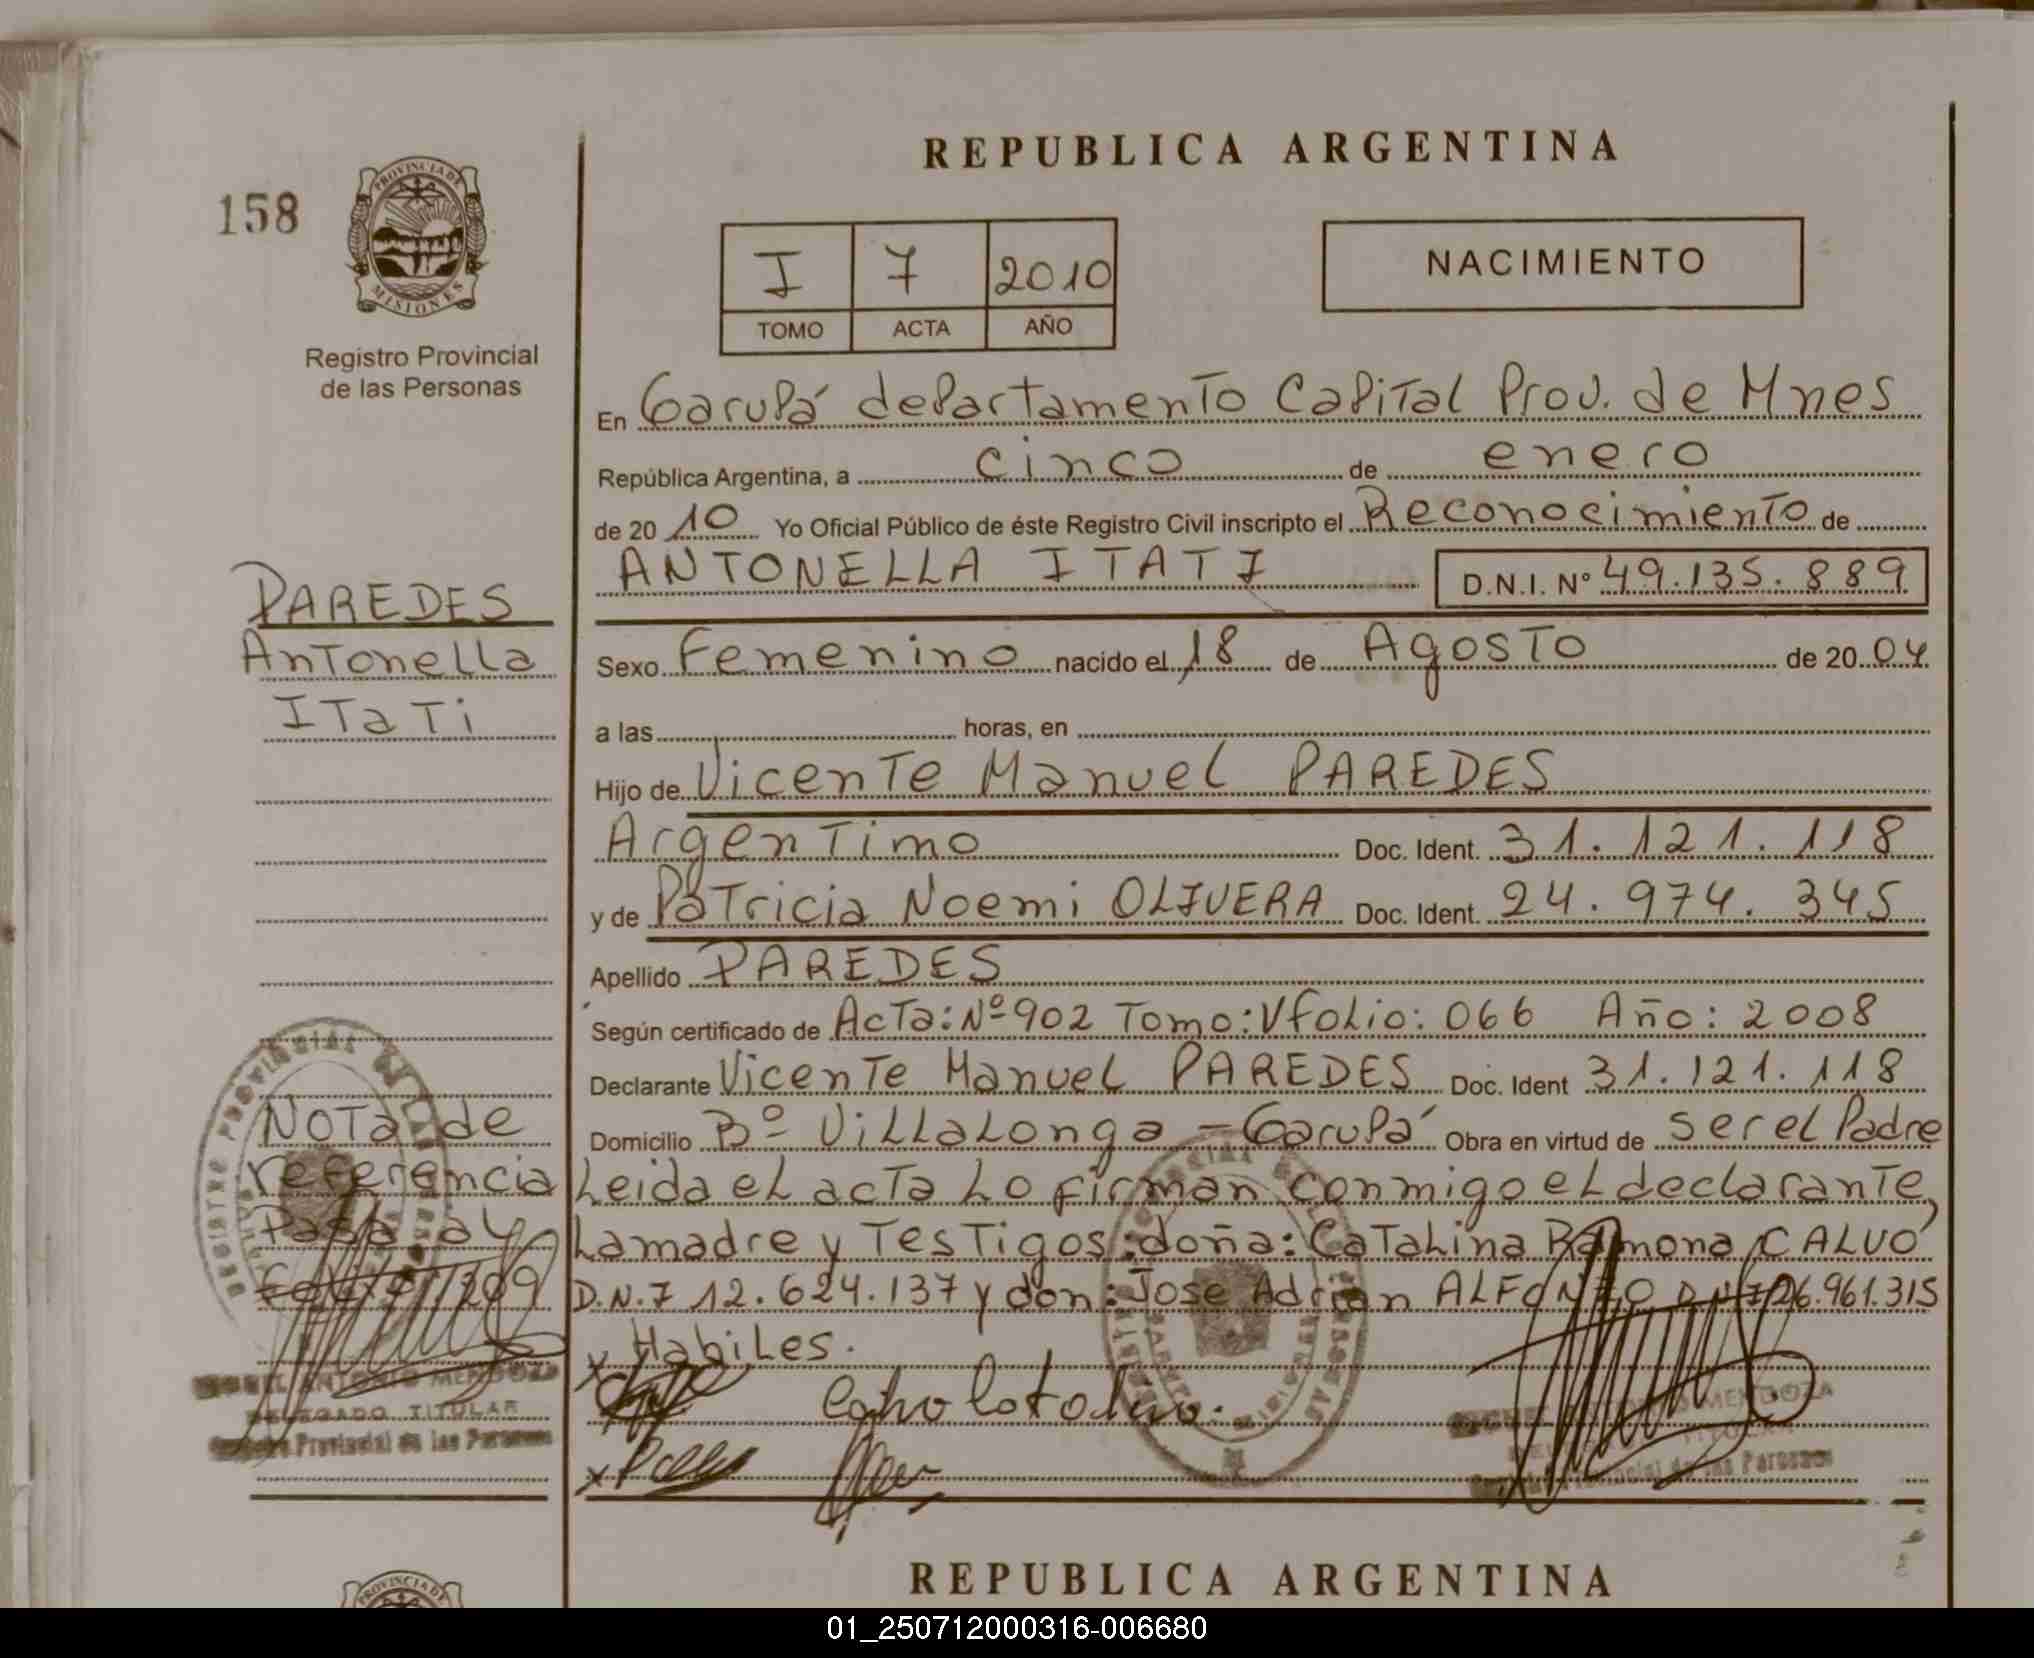 REPUBLICA ARGENTINA
158
PROVINCIA DE
MISIONES
Registro Provincial
de las Personas
I 7 2010
TOMO ACTA AÑO
NACIMIENTO
En Garupá departamento Capital Prov. de Mnes
República Argentina, a cinco de enero
de 2010 Yo Oficial Público de éste Registro Civil inscripto el Reconocimiento de
ANTONELLA ITATI D.N.I. Nº 49.135.889
PAREDES
Antonella
Itati
Sexo Femenino nacido el 18 de Agosto de 2004
a las horas, en
Hijo de Vicente Manuel PAREDES
Argentino Doc. Ident. 31.121.118
y de Patricia Noemi OLIVERA Doc. Ident. 24.974.345
Apellido PAREDES
Según certificado de Acta: Nº 902 Tomo: V folio: 066 Año: 2008
Declarante Vicente Manuel PAREDES Doc. Ident 31.121.118
Domicilio Bº Villalonga - Garupá Obra en virtud de ser el Padre
Leida el acta Lo firman conmigo el declarante,
La madre y Testigos: doña: Catalina Ramona CALVO
D.N.I 12.624.137 y don: Jose Adrian ALFONZO D.N.I 26.961.315
y Habiles.
Nota de
referencia
Pasa al
Folio: 209
ANTONIO MENDOZA
DELEGADO TITULAR
Registro Provincial de las Personas
MENDOZA
TITULAR
Provincial de las Personas
REPUBLICA ARGENTINA
PROVINCIA DE
01_250712000316-006680